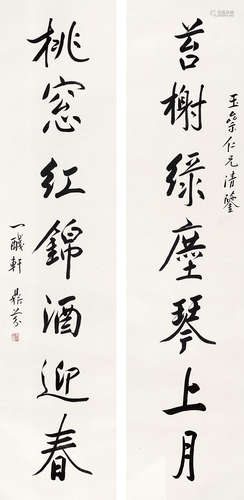 玉崇仁兄清鑒
苔榭綠塵琴上月
桃窓紅錦酒迎春
一醎軒 鼎芬